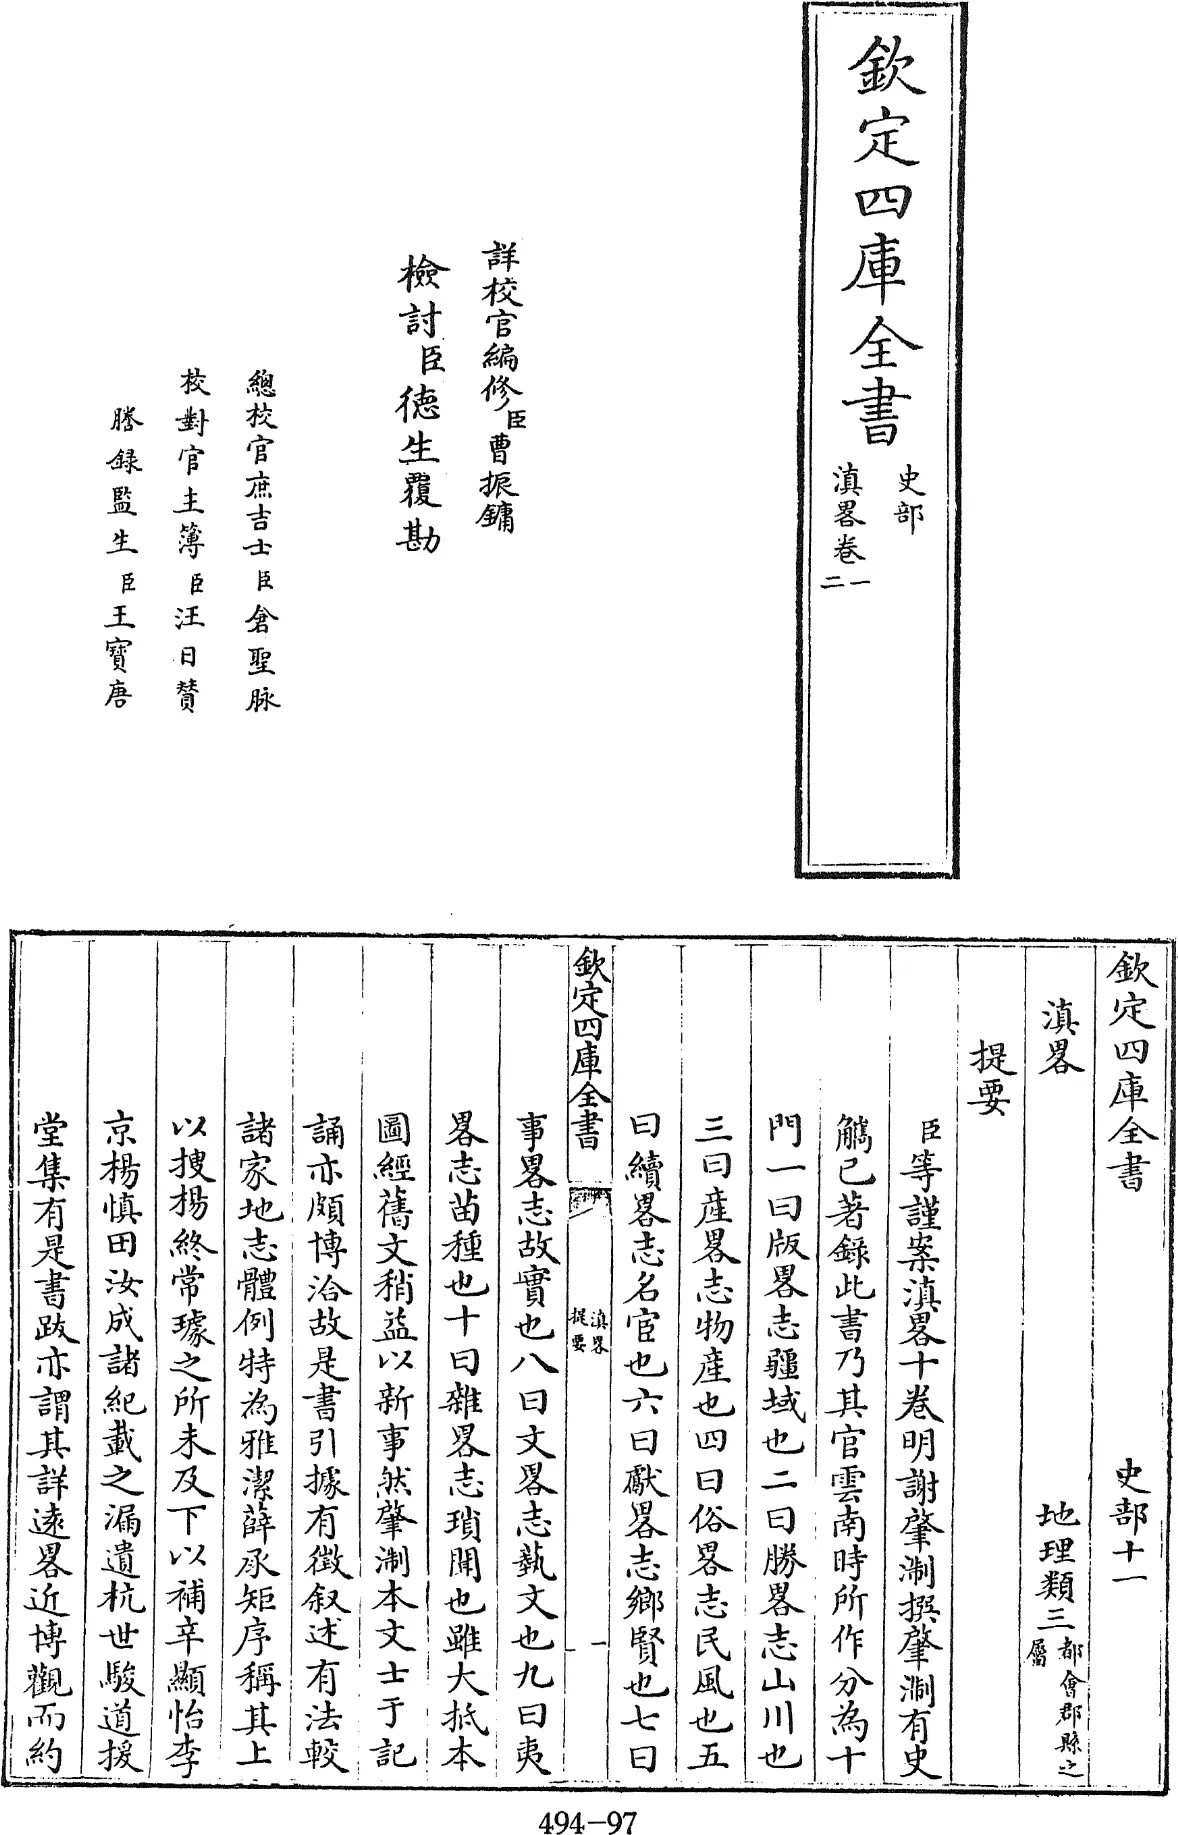 欽定四庫全書
史部
滇畧卷一
二
詳校官編修臣曹振鏞
檢討臣德生覆勘
總校官庶吉士臣倉聖脉
校對官主簿臣汪日贊
謄錄監生臣王寶唐
欽定四庫全書 史部十一
滇畧 地理類三都會郡縣之屬
提要
臣等謹案滇畧十卷明謝肇淛撰肇淛有史
觿已著錄此書乃其官雲南時所作分為十
門一曰版畧志疆域也二曰勝畧志山川也
三曰產畧志物產也四曰俗畧志民風也五
曰續畧志名宦也六曰獻畧志鄉賢也七曰
欽定四庫全書 滇畧提要 一
事畧志故實也八曰文畧志藝文也九曰夷
畧志苗種也十曰雜畧志瑣聞也雖大抵本
圖經舊文稍益以新事然肇淛本文士于記
誦亦頗博洽故是書引據有徵叙述有法較
諸家地志體例特為雅潔薛承矩序稱其上
以搜楊終常璩之所未及下以補辛顯怡李
京楊慎田汝成諸紀載之漏遺杭世駿道援
堂集有是書跋亦謂其詳遠畧近博觀而約
494-97